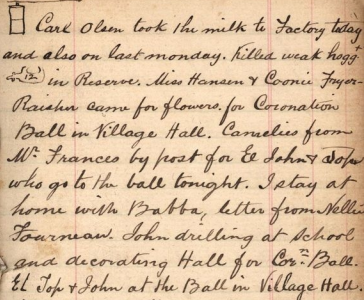 Carl Olsen took the milk to Factory today
and also on last monday. Killed weak hogg
in Reserve. Miss Hansen & Coonie Fryer-
Raishn came for flowers. for Coronation
Ball in Village Hall. Camelies from
Mr. Frances by post for El John & Top
who go to the ball tonight. I stay at
home with Babba, letter from Nellie
Fourneau. John drilling at School
and decorating Hall for Corn. Ball.
El Top & John at the Ball in Village Hall.